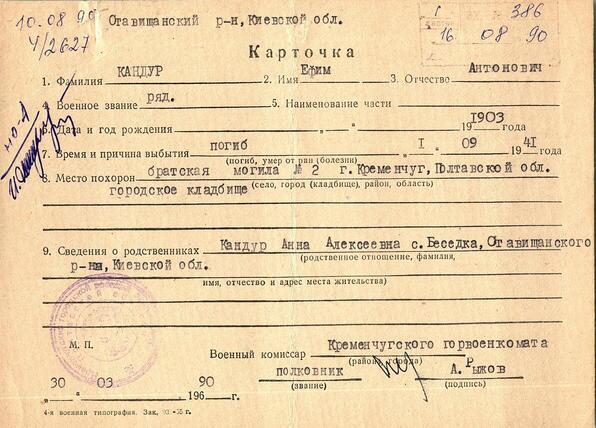 10.08 90 Ставищанский р-н, Киевской обл.
4/2627
386
16 08 90
Карточка
1. Фамилия КАНДУР 2. Имя Ефим 3. Отчество Антонович
4. Военное звание ряд. 5. Наименование части
6. Дата и год рождения „ „ 1903 года
7. Время и причина выбытия погиб „ I „ 09 1941 года
(погиб, умер от ран (болезни)
8. Место похорон братская могила № 2 г.Кременчуг,Полтавской обл.
городское кладбище (село, город (кладбище), район, область)
9. Сведения о родственниках Кандур Анна Алексеевна с.Беседка,Ставищанского
(родственное отношение, фамилия,
р-на,Киевской обл.
имя, отчество и адрес места жительства)
М. П.
Военный комиссар Кременчугского горвоенкомата
(района, города)
полковник А.Рыжов
(звание) (подпись)
30 03 90
„ “ 196 г.
4-я военная типография. Зак.